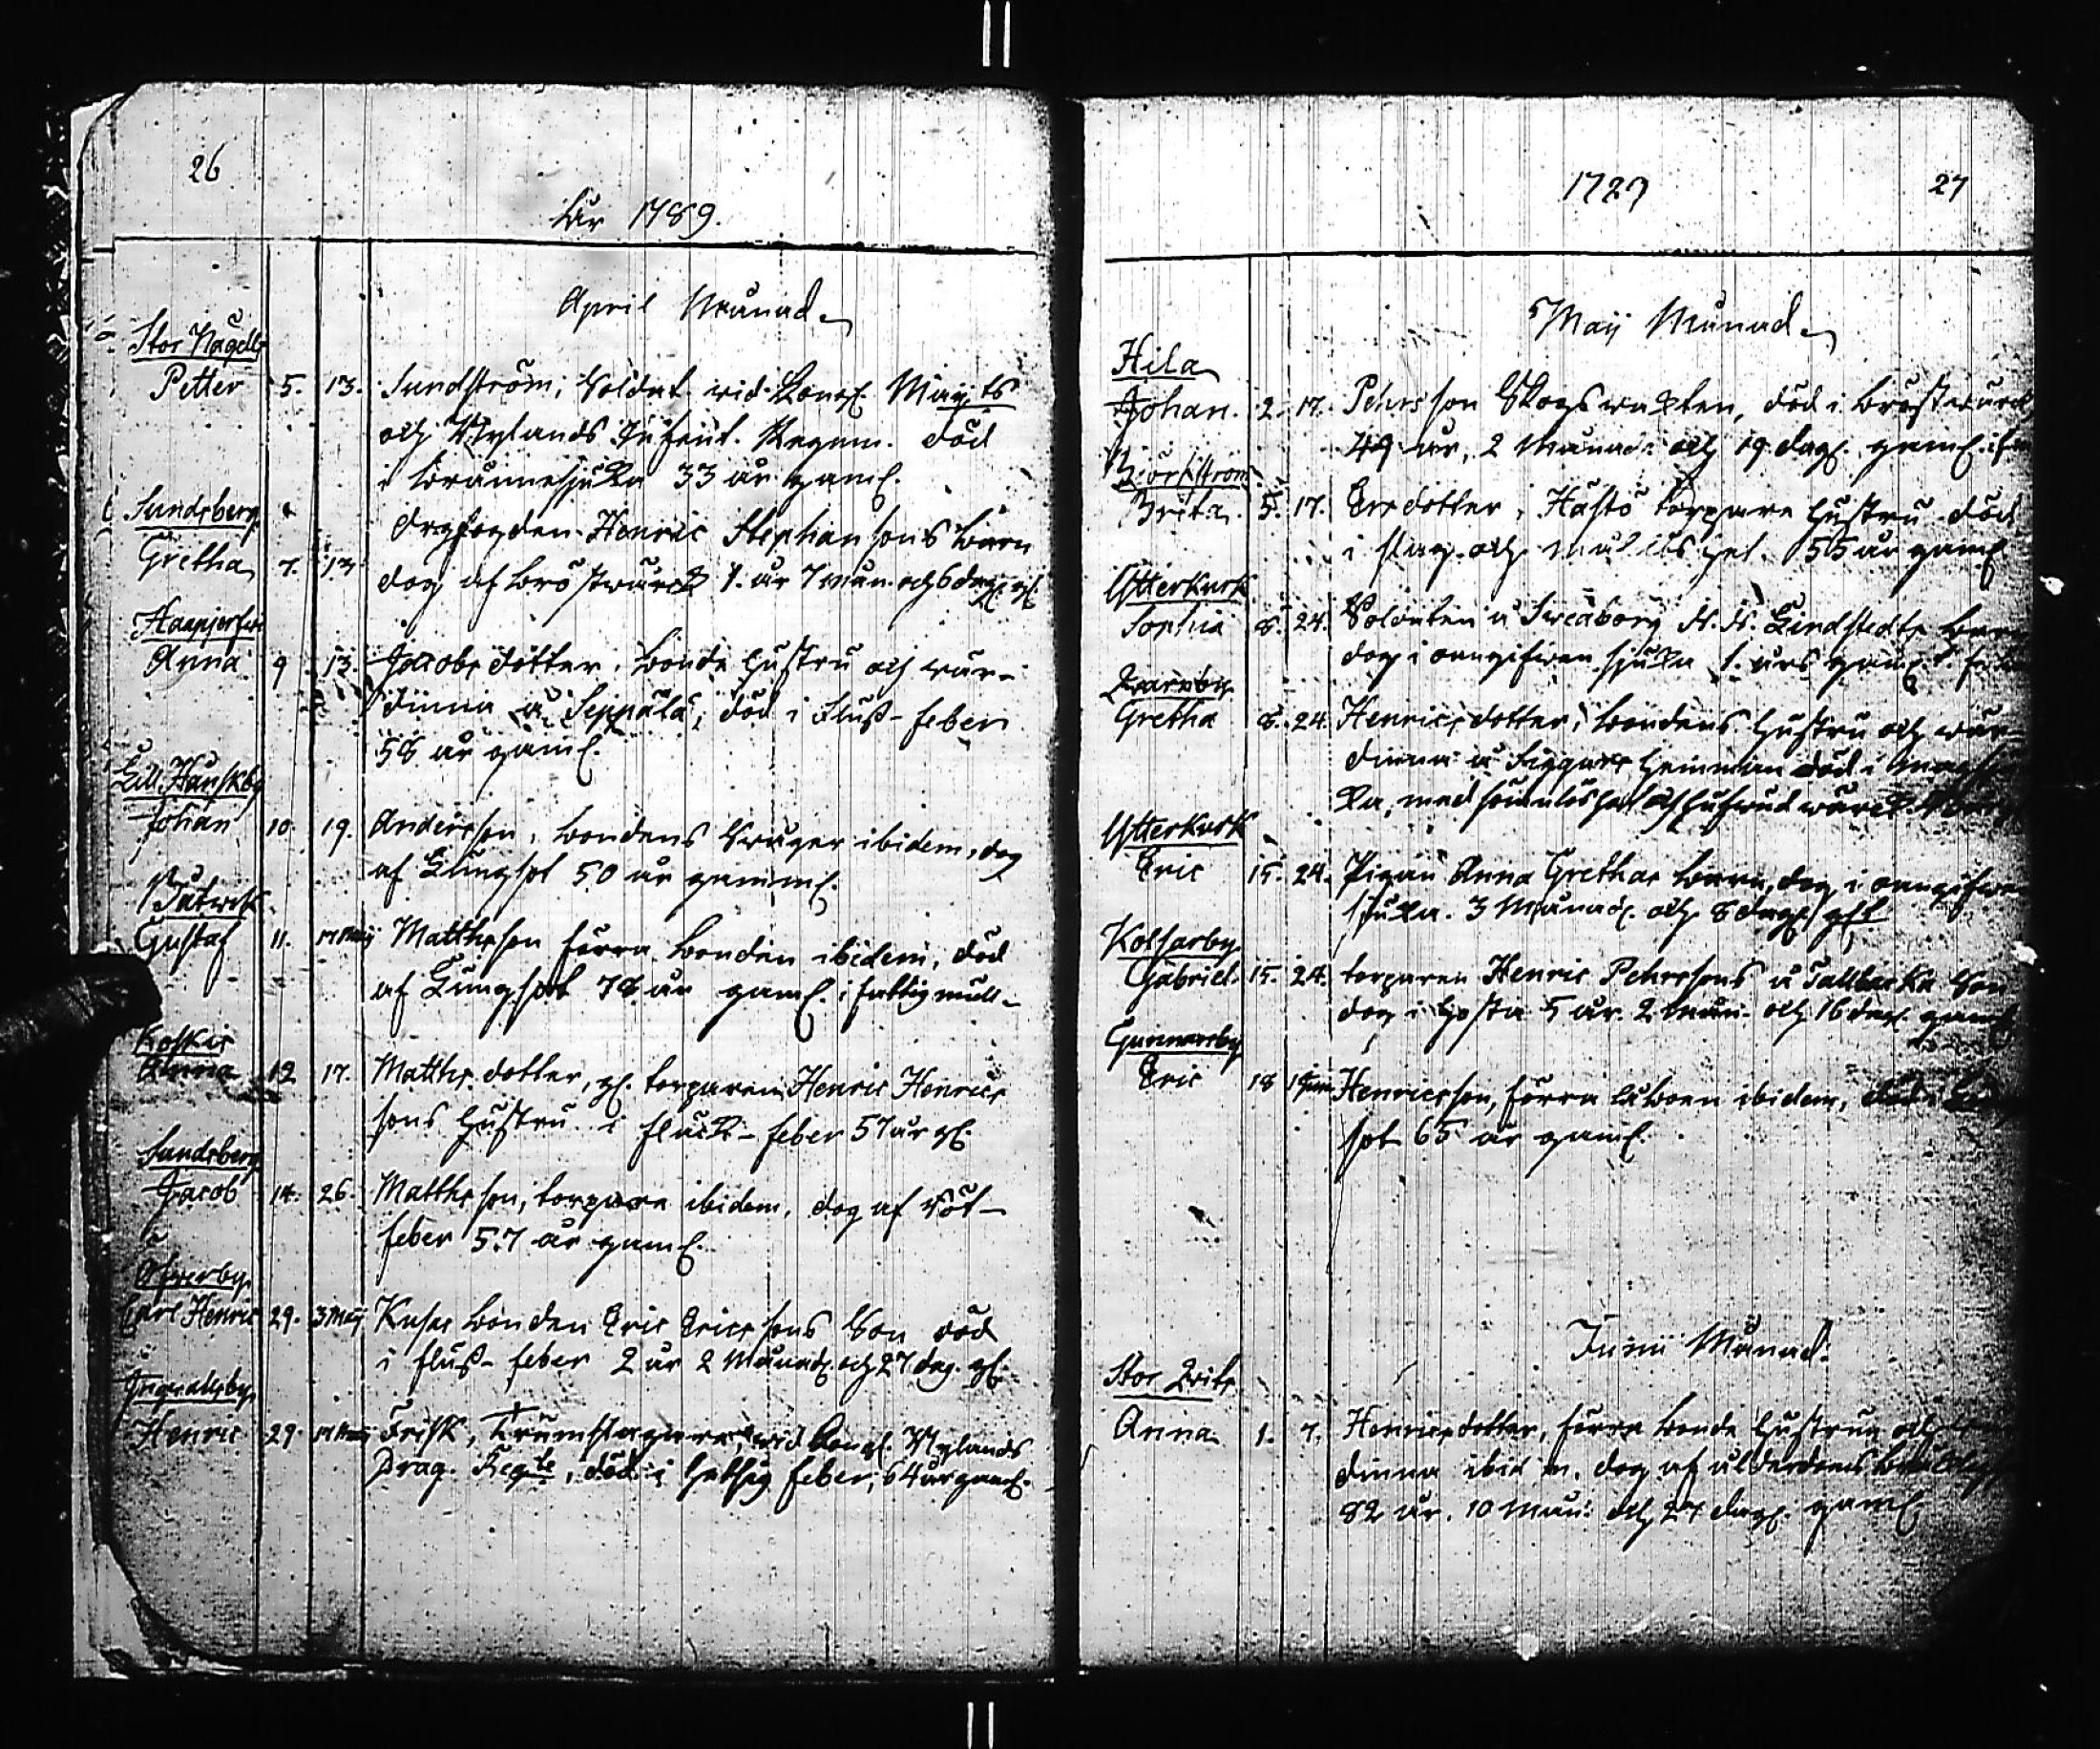 26
År 1789.
April Månad.
Stor Nägels
Petter 5. 13. Sundström, Soldat vid Kongl. Maij:ts
och Nylands Infant. Regem. död
i brännesjuka 33 år gaml.
Sundsberg
Gretha 7. 13 Henric Stephansons barn
dog af bröstwärck 1. år 7 mån. och 6 dag. gl.
Anna 9 13. Jacobs dotter, bonde hustru och wär-
dinna å Seppälä, död i Fluß-feber
58 år gaml.
Lill Hanskby
Johan 10. 19. Andersson, bondens Swåger ibidem, dog
af Lungsot 50 år gamml.
Gustaf 11. Matthsson förra bonden ibidem, död
af Lungsot 78 år gaml. i fattigmull
Koskis
Anna 12 17. Matths dotter, gl. torparen Henric Henrics
sons hustru i fluß-feber 57 år gl.
Sundsberg
Jacob 14. 26. Matthsson, torpare ibidem, dog af Röt-
feber 57 år gaml.
Öfwerby
Carl Henric 29. 3 Maij Kusas bonden Eric Ericssons Son död
i fluß-feber 2 år 2 Månad. och 27 dag. gl.
Ingwalsby
Henric 29. Frisk, Trumslagare, wid Kongl. Nylands
Drag. Reg:te, död i hetsig feber, 64 år gaml.
27
Maij Månad.
Hila
Johan. 2. 17. Pehrsson Skogswakten, död i bröstwärck
49 år, 2 Månad. och 19 dag. gaml.
Björkström
Brita. 5. 17. Ersdotter, Hästö torpare hustru död
i slag och 55 år gaml.
Ytterkurk
Sophia 8. 24. Volonten å Sweaborg Lindstedts barn
dog i oangifwen sjuka 1. års gaml.
Gretha 8. 24. Henricsdotter, bondens hustru och wär-
dinna å Siggars hemman död i
Ytterkurk
Eric 15. 24. Pigan Anna Grethas barn, dog i oangifwen
sjuka. 3 Månad. och 8 dag. gl.
Kolsarby
Gabriel. 15. 24. torparen Henric Pehrssons å Tallbacka Son
dog i hosta 5 år. 2 mån. och 16 dag. gaml.
Gunnarsby
Eric 18 Henricsson, förra ibidem,
sot 65 år gaml.
Junii Månad.
Anna 1. 7. Henricsdotter, förra bonde hustrun och
dinna ibidem, dog af ålderdoms
82 år. 10 Mån. och 27 dag. gaml.